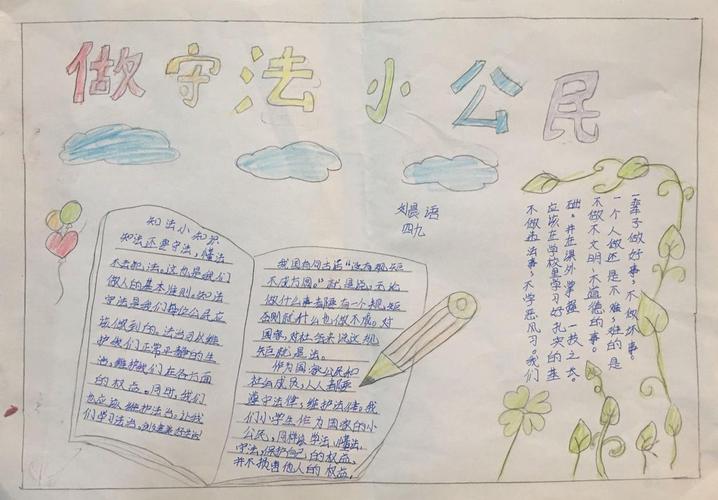 做守法小公民
刘晨语
四九
知法小知识
知法还要守法，懂法
不去犯法。这也是我们
做人的基本准则。知法
守法是我们每位公民应
该做到的。法当可以维
护我们正常平静的生
活，维护我们在各方面
的权益。同时，我们
也应该维护法当。让我
们学习法当，
我国自何古至"没有规矩
不成方圆。"就是说，无论
做什么事去都有一个规矩
否则就什么也做不成。对
国家，对社会来说这规
矩就是法。
作为国家公民和
社会成员，人人都要
遵守法律，维护法律。我
们小学生作为国家的小
公民，同样该学法，懂法，
守法，保护自己的权益，
并不损害他人的权益。
一辈子做好事，不做坏事。
一个人做还是不难，难的是
不做不文明、不道德的事。
础。并在课外掌握一技之太。
应该在学校里学习好扎实的基
不做违法事，不学恶风习。我们